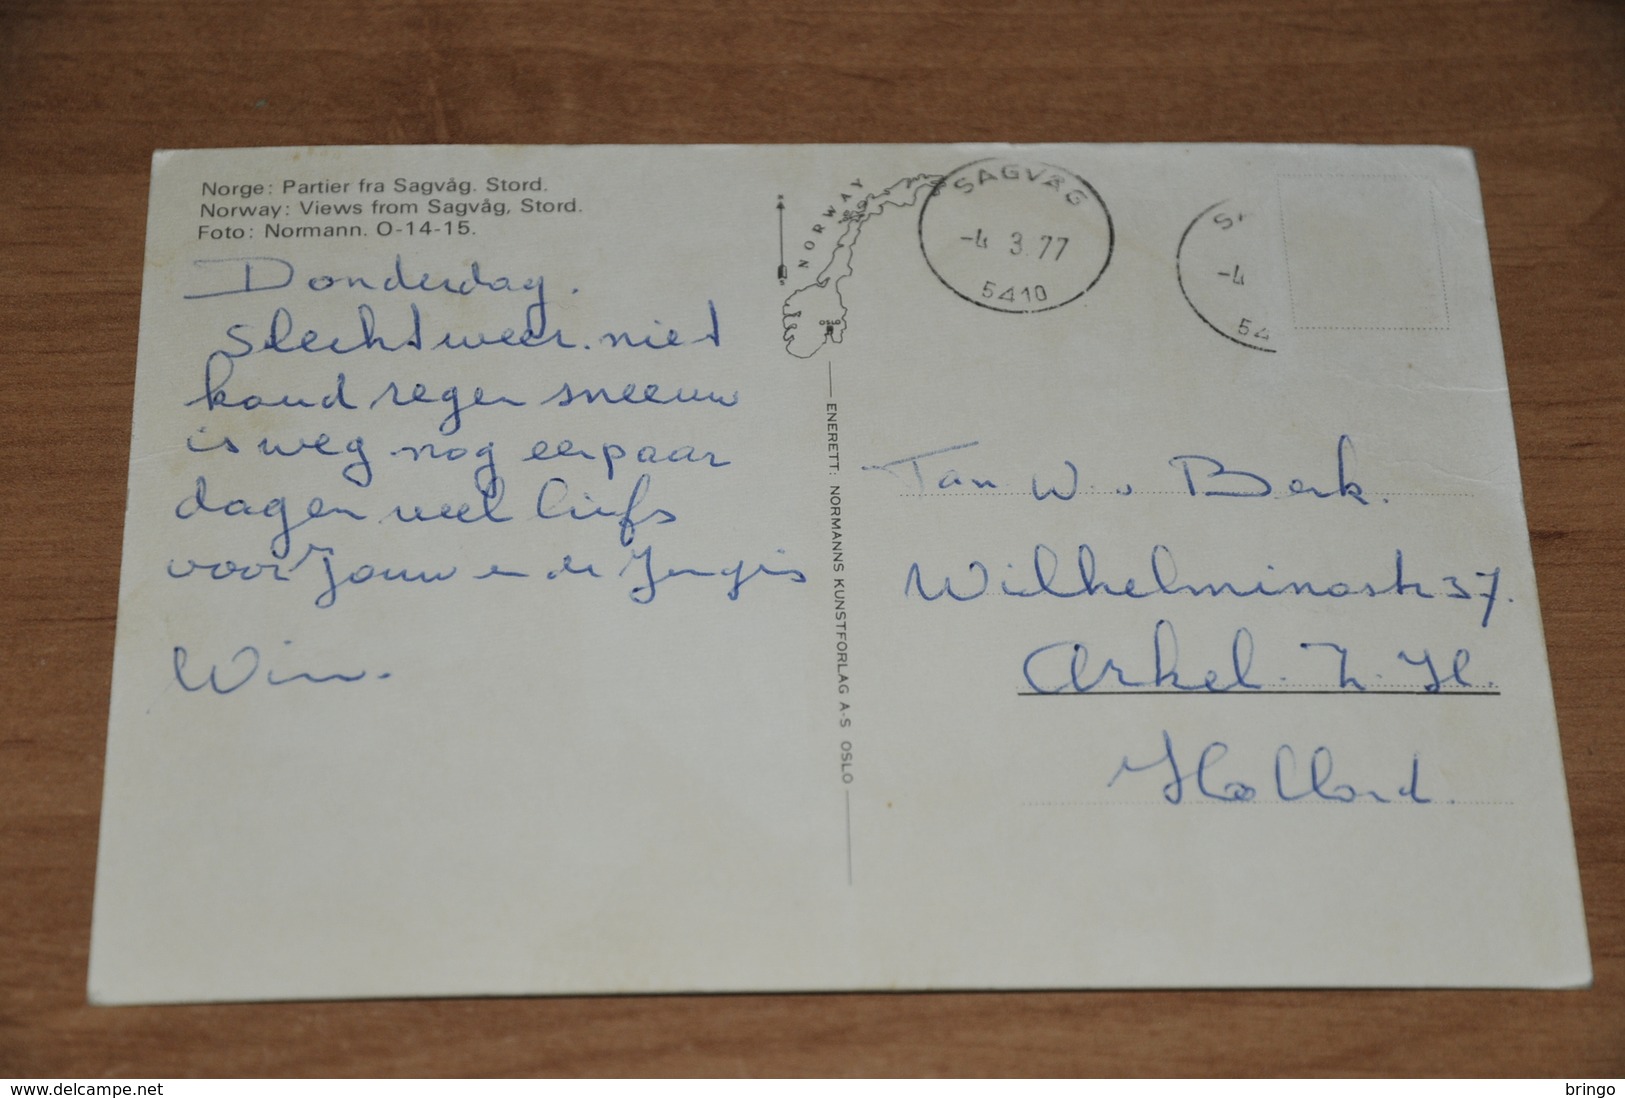 Norge: Partier fra Sagvåg. Stord.
Norway: Views from Sagvåg, Stord.
Foto: Normann. O-14-15.
Donderdag.
Slecht weer. niet
koud regen sneeuw
is weg nog een paar
dagen veel liefs
voor Jouw en de Jongis
Wim.
NORWAY
ENERETT: NORMANNS KUNSTFORLAG A-S OSLO
SAGVÅG
-4 3.77
5410
S
-4
54
Fam W. v Berk.
Wilhelminastr 37.
Arkel. Z. H.
Holland.
www.delcampe.net
bringo